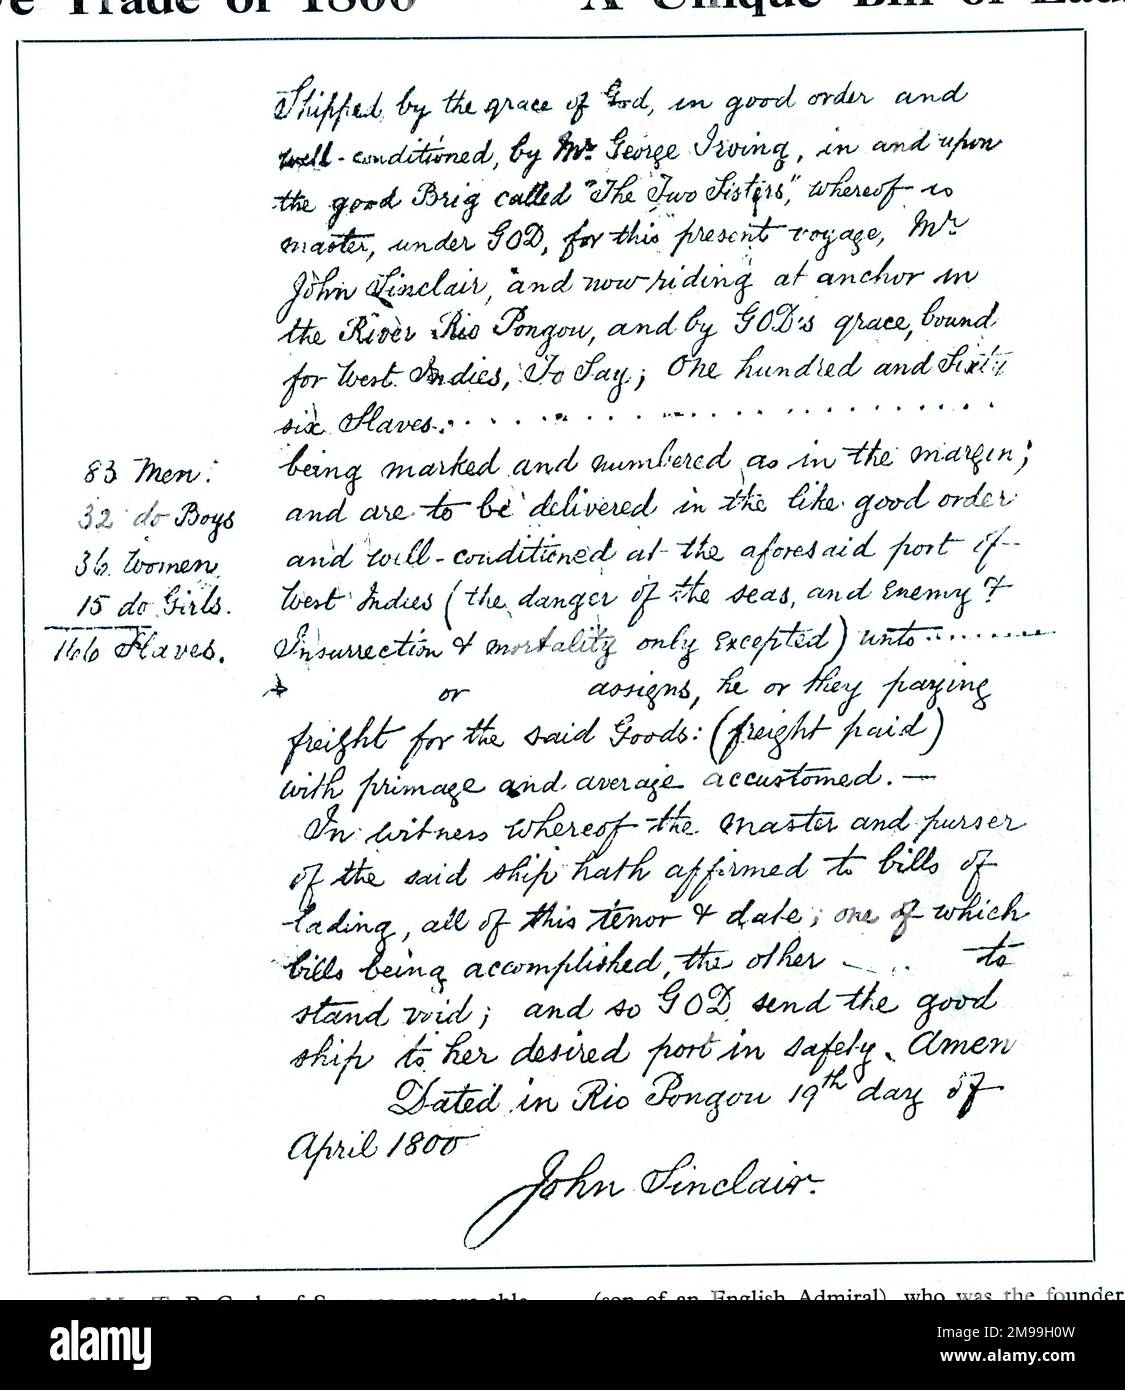 Trade of 1800 A Unique Bill of
Shipped by the grace of God, in good order and
well-conditioned, by Mr. George Irving, in and upon
the good Brig called "The Two Sisters," whereof is
master, under GOD, for this present voyage, Mr
John Sinclair, and now riding at anchor in
the River Rio Pongou, and by GOD's grace, bound
for West Indies, To Say; One hundred and Sixty
six Slaves.
83 Men:
32 do Boys
36 Women
15 do Girls.
166 Slaves.
being marked and numbered as in the margin;
and are to be delivered in the like good order
and well-conditioned at the aforesaid port of
West Indies (the danger of the seas, and Enemy &
Insurrection & mortality only excepted) unto
or assigns, he or they paying
freight for the said Goods: (freight paid)
with primage and average accustomed. —
In witness whereof the master and purser
of the said ship hath affirmed to bills of
lading, all of this tenor & date; one of which
bills being accomplished, the other to
stand void; and so GOD send the good
ship to her desired port in safety. Amen
Dated in Rio Pongou 19th day of
April 1800
John Sinclair.
(son of an English Admiral), who was the founder
alamy
Image ID: M99H0W
www.alamy.com